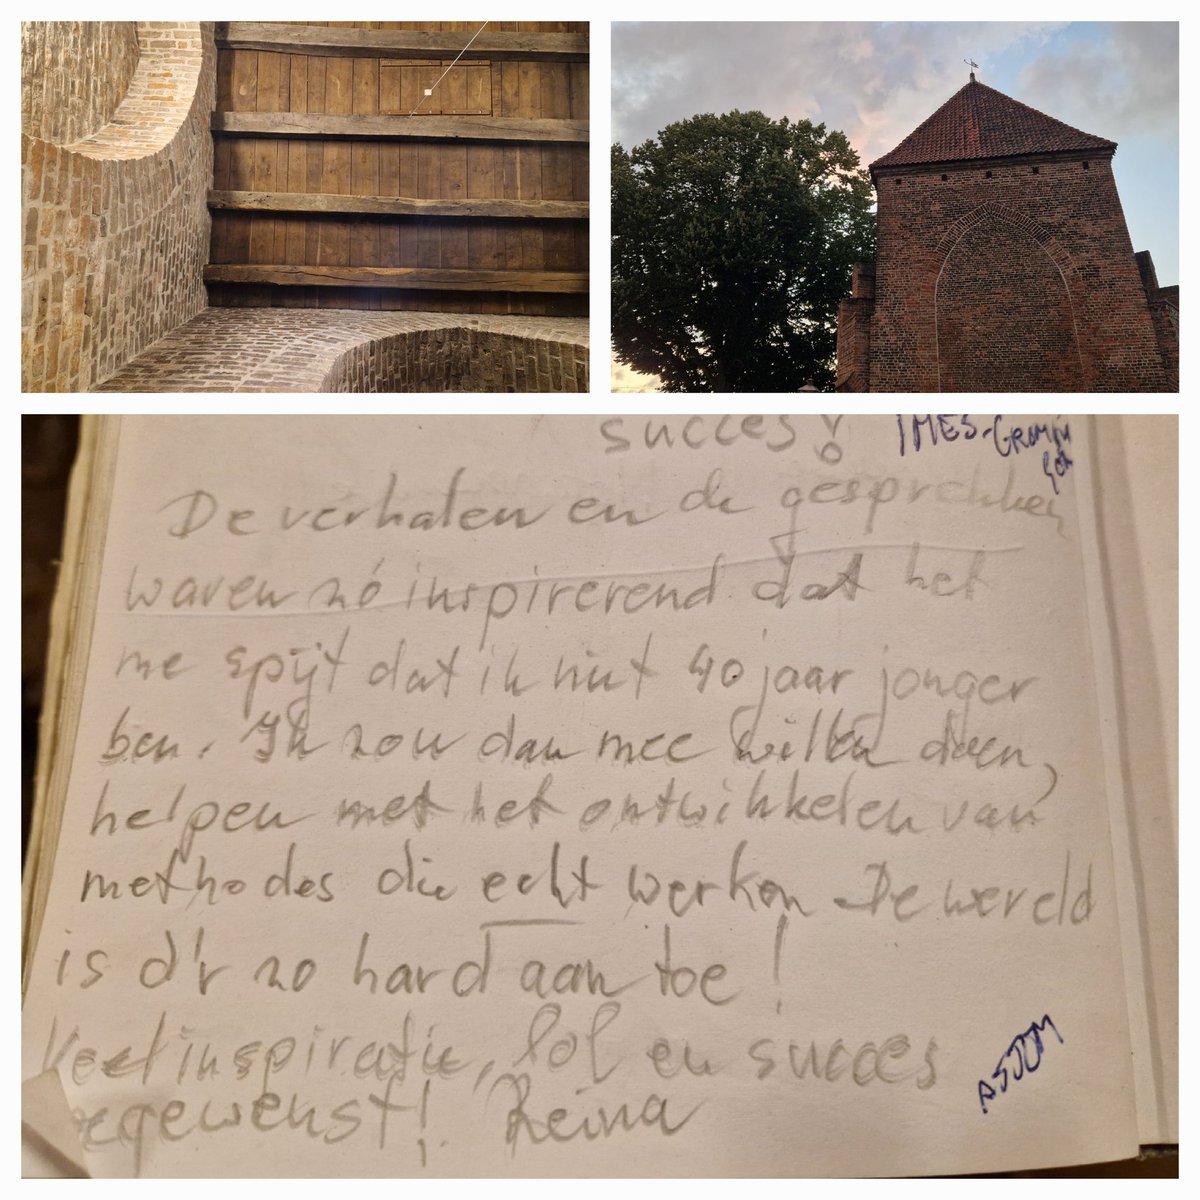 succes!
IMES-
De verhalen en de gesprekken
waren zó inspirerend dat het
me spijt dat ik niet 40 jaar jonger
ben. Ik zou dan mee willen doen,
helpen met het ontwikkelen van
methodes die echt werken. De wereld
is d'r zo hard aan toe!
Veel inspiratie, lol en succes
gewenst! Reina